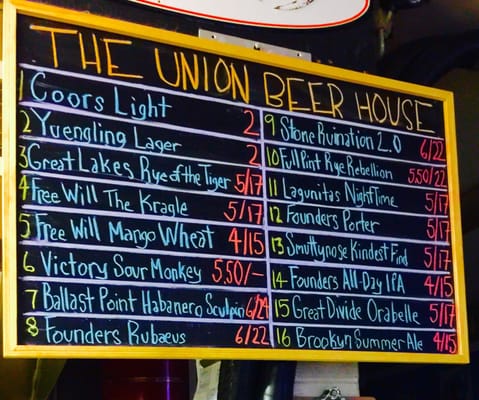 THE UNION BEER HOUSE
1 Coors Light 2
2 Yuengling Lager 2
3 Great Lakes Rye of the Tiger 5/17
4 Free Will The Kragle 5/17
5 Free Will Mango Wheat 4/15
6 Victory Sour Monkey 5,50/-
7 Ballast Point Habanero Sculpin 6/24
8 Founders Rubaeus 6/22
9 Stone Ruination 2.0 6/22
10 Full Pint Rye Rebellion 5,50/22
11 Lagunitas NightTime 5/17
12 Founders Porter 5/17
13 Smuttynose Kindest Find 5/17
14 Founders All-Day IPA 4/15
15 Great Divide Orabelle 5/17
16 Brookyn Summer Ale 4/15